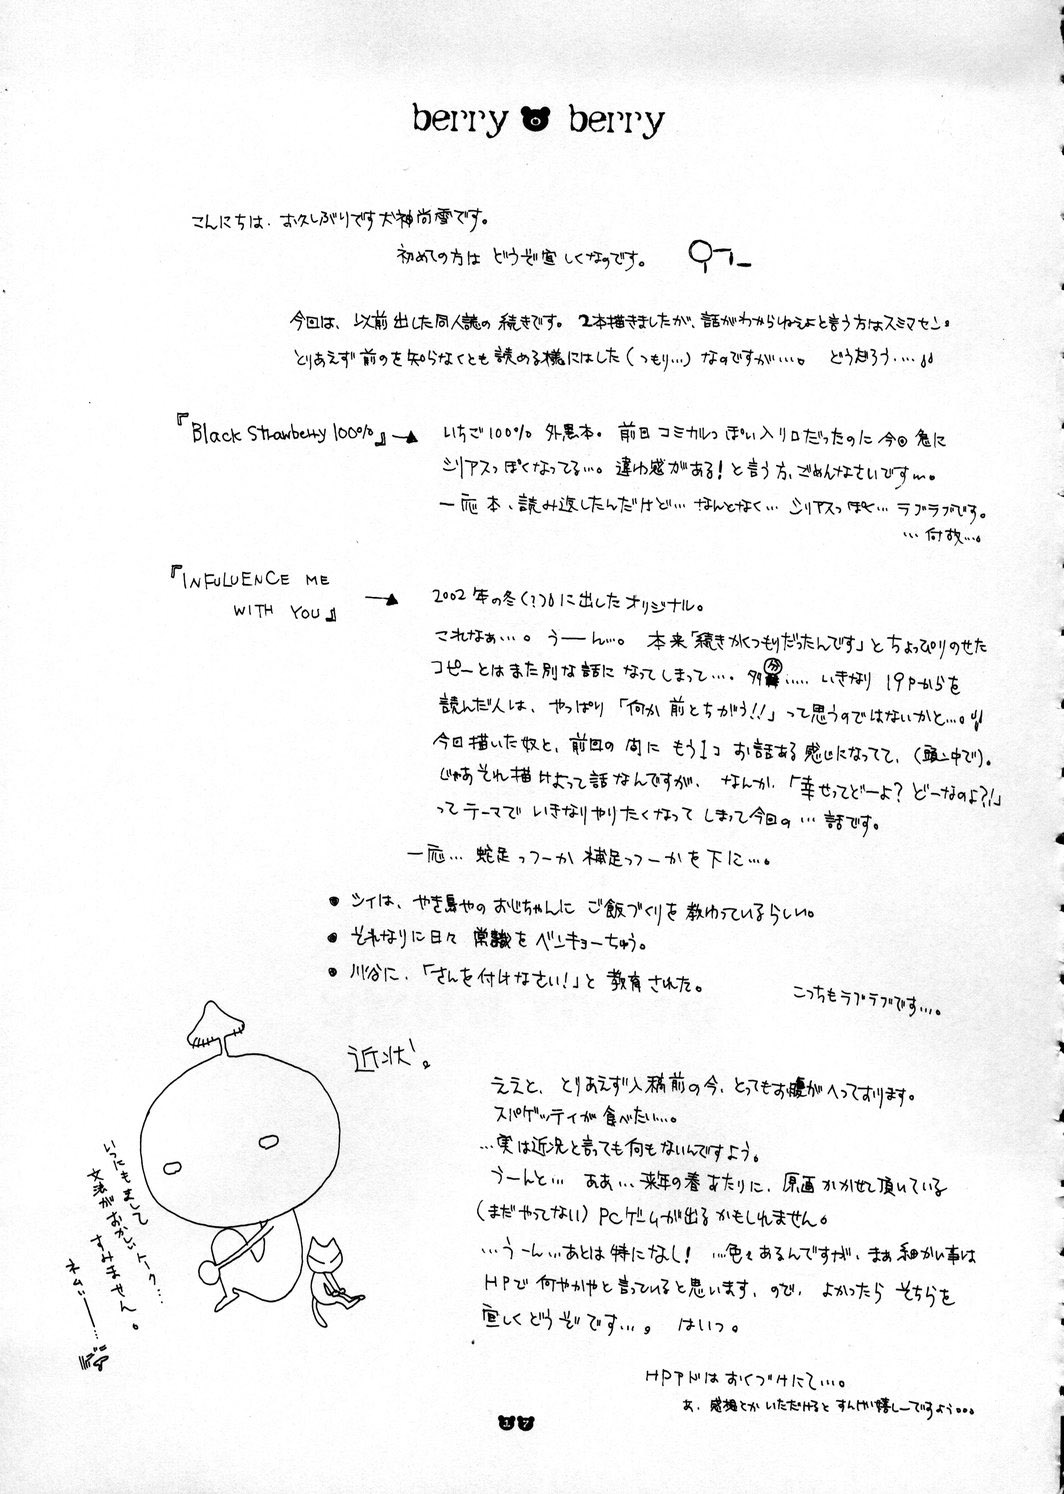 berry berry
こんにちは、お久しぶりです犬神尚雪です。
初めての方は どうぞ宜しくなのです。
今回は、以前出した同人誌の続きです。2本描きましたが、話がわからねえよと言う方はスミマセン。
とりあえず前のを知らなくとも読める様にはした(つもり…)なのですが…。 どうだろう….
『Black Strawberry 100%』→ いちご100% 外黒本。前回コミカルっぽい入り口だったのに今回急に
シリアスっぽくなってる…。違和感がある!と言う方、ごめんなさいです。
一応本、読み返したんだけど… なんとなく… シリアスっぽく… ラブラブです。
… 何故…。
『INFULUENCE ME
WITH YOU』
→ 2002年の冬(?)に出したオリジナル。
これなぁ…。うーん…。 本来「続きかくつもりだったんです」とちょっぴりのせた
コピーとはまた別な話になってしまって…. 多分….. いきなり19Pからを
読んだ人は、やっぱり「何か前とちがう!!」って思うのではないかと…。
今回描いた奴と、前回の間に もう1コ お話ある感じになってて、(頭ン中で)。
じゃあそれ描けよって話なんですが、 なんか、「幸せってどーよ? どーなのよ?!」
ってテーマで いきなりやりたくなって しまって今回の… 話です。
一応… 蛇足っつーか 補足っつーかを下に…。
● シイは、やき鳥やのおじちゃんに ご飯づくりを教わっているらしい。
● それなりに日々 常識をベンキョーちゅう。
● 川谷に、「さんを付けなさい!」と 教育された。
こっちもラブラブです…。
近状。
ええと、とりあえず入稿前の今、とってもお腹がへっております。
スパゲッティが食べたい…。
…実は近況と言っても何もないんですよう。
うーんと… ああ… 来年の春あたりに、原画かかせて頂いている
(まだやってない)PCゲームが出るかもしれません。
…うーん…あとは特になし! …色々あるんですが、まぁ細かい事は
HPで何やかやと言っていると思います、ので、よかったら そちらを
宜しくどうぞです…。 はいっ。
いつにもまして
文法がおかしいトーク….
すみません。
ネムいー…
HPアドはおくづけにて…。
あ、感想とかいただけると すんげい嬉しーですよう…
17